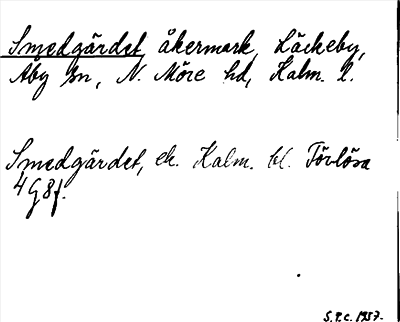 Smedgärdet åkermark, Läckeby,
Åby sn, N. Möre hd, Kalm. l.
Smedgärdet, ek. Kalm. bl. Törlösa
4G8f.
S.P.C. 1957.